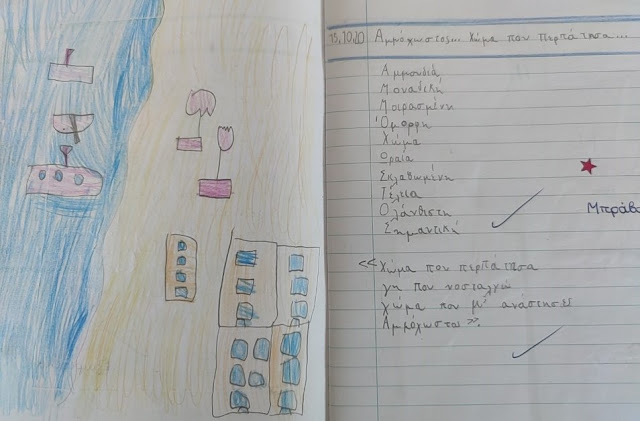 13.10.20 Αμμόχωστος... Χώμα που περπάτησα...
Αμμουδιά
Μοναδική
Μοιρασμένη
Όμορφη
Χώμα
Ωραία
Σκλαβωμένη
Τέλεια
Ολάνθιστη
Σημαντική
Μπράβο
«Χώμα που περπάτησα
γη που νοσταλγώ
χώμα που μ' ανάστησες
Αμμόχωστου».